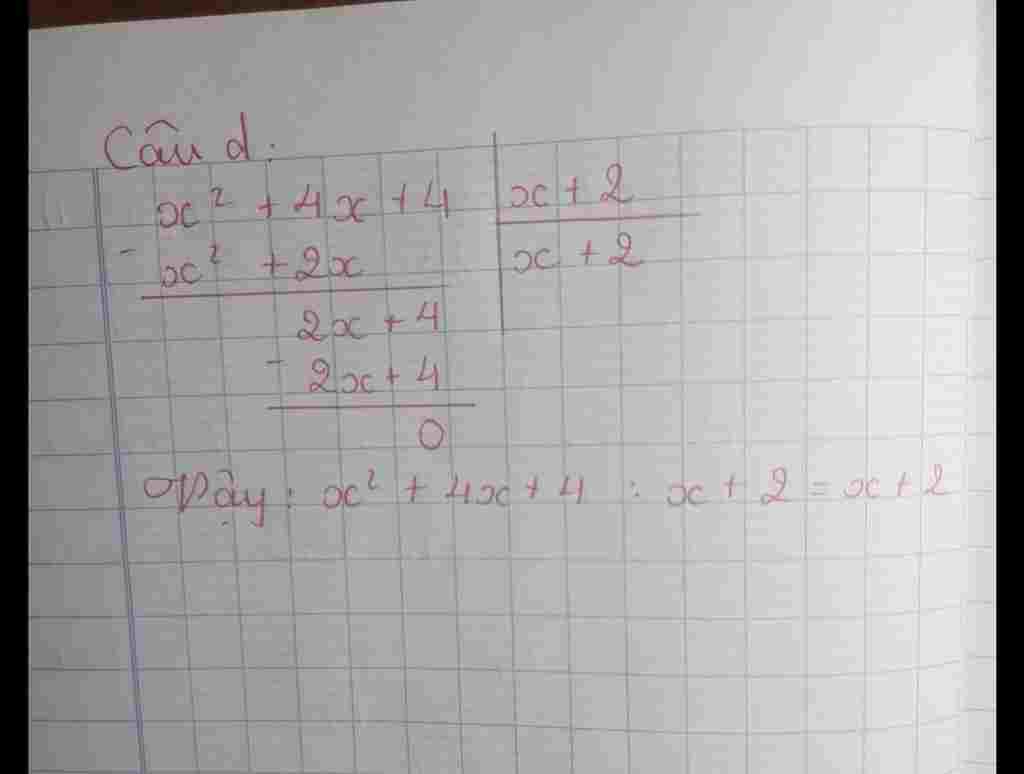 Câu d:
x² + 4x + 4 | x + 2
- x² + 2x | x + 2
2x + 4
- 2x + 4
0
Vậy: x² + 4x + 4 : x + 2 = x + 2